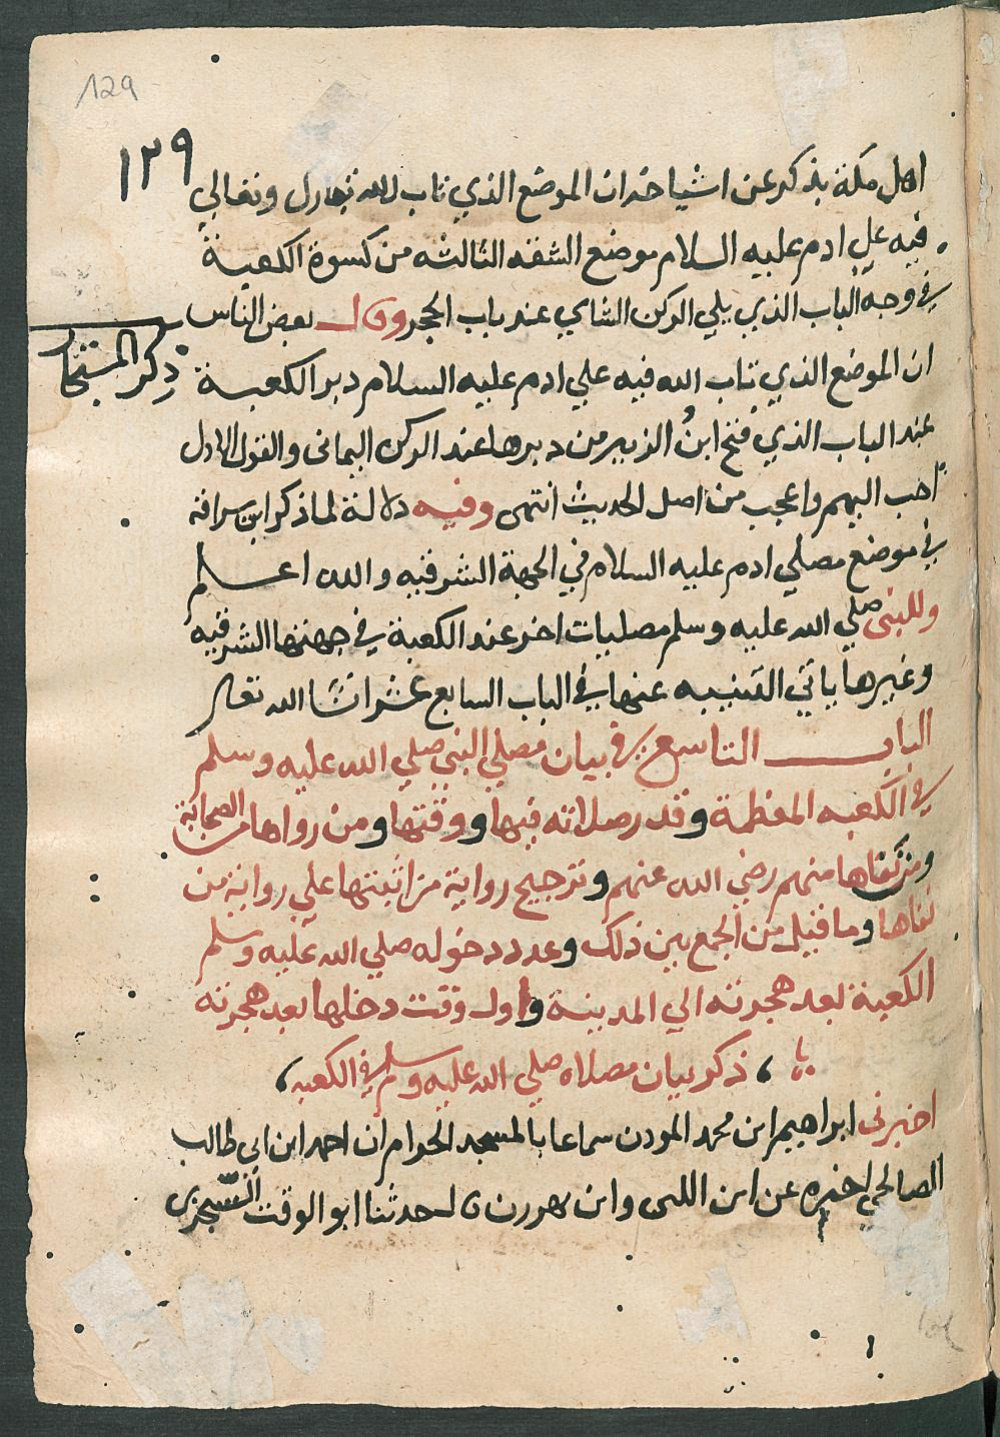 129
١٢٩
اهل مكة يذكر عن اشياخه ان الموضع الذي تاب الله تبارك وتعالي
فيه علي ادم عليه السلام موضع الشقه الثالثه من كسوة الكعبة
في وجه الباب الذي يلي الركن الشامي عند باب الحجر وقال بعض الناس
ذكر المستجار
ان الموضع الذي تاب الله فيه علي ادم عليه السلام دبر الكعبة
عند الباب الذي فتح ابنُ الزبير من دبرها عند الركن اليمانى والقول الاول
احب اليهم واعجب من اصل الحديث انتهى وفيه دلالة لما ذكر ابن سراقة
في موضع مصلي ادم عليه السلام في الجهة الشرقيه والله اعلم
وللنبى صلي الله عليه وسلم مصليات اخر عند الكعبة في جهتها الشرقيه
وغيرها ياتي التنبيه عنها في الباب السابع عشر ان شا الله تعالى
الباب التاسع في بيان مصلي النبي صلي الله عليه وسلم
في الكعبه المعظمة وقدر صلاته فيها ووقتها ومن رواها من الصحابة
ومن نفاها منهم رضي الله عنهم وترجيح رواية من اثبتها علي رواية من
نفاها وما قيل من الجمع بين ذلك وعدد دخوله صلي الله عليه وسلم
الكعبة بعد هجرته الي المدينة واول وقت دخلها بعد هجرته
ذكر بيان مصلاه صلي الله عليه وسلم في الكعبه
اخبرنى ابراهيم ابن محمد المودن سماعا بالمسجد الحرام ان احمد ابن ابي طالب
الصالحي اخبره عن ابن اللتى وابن بهروز قال حدثنا ابو الوقت السجزى